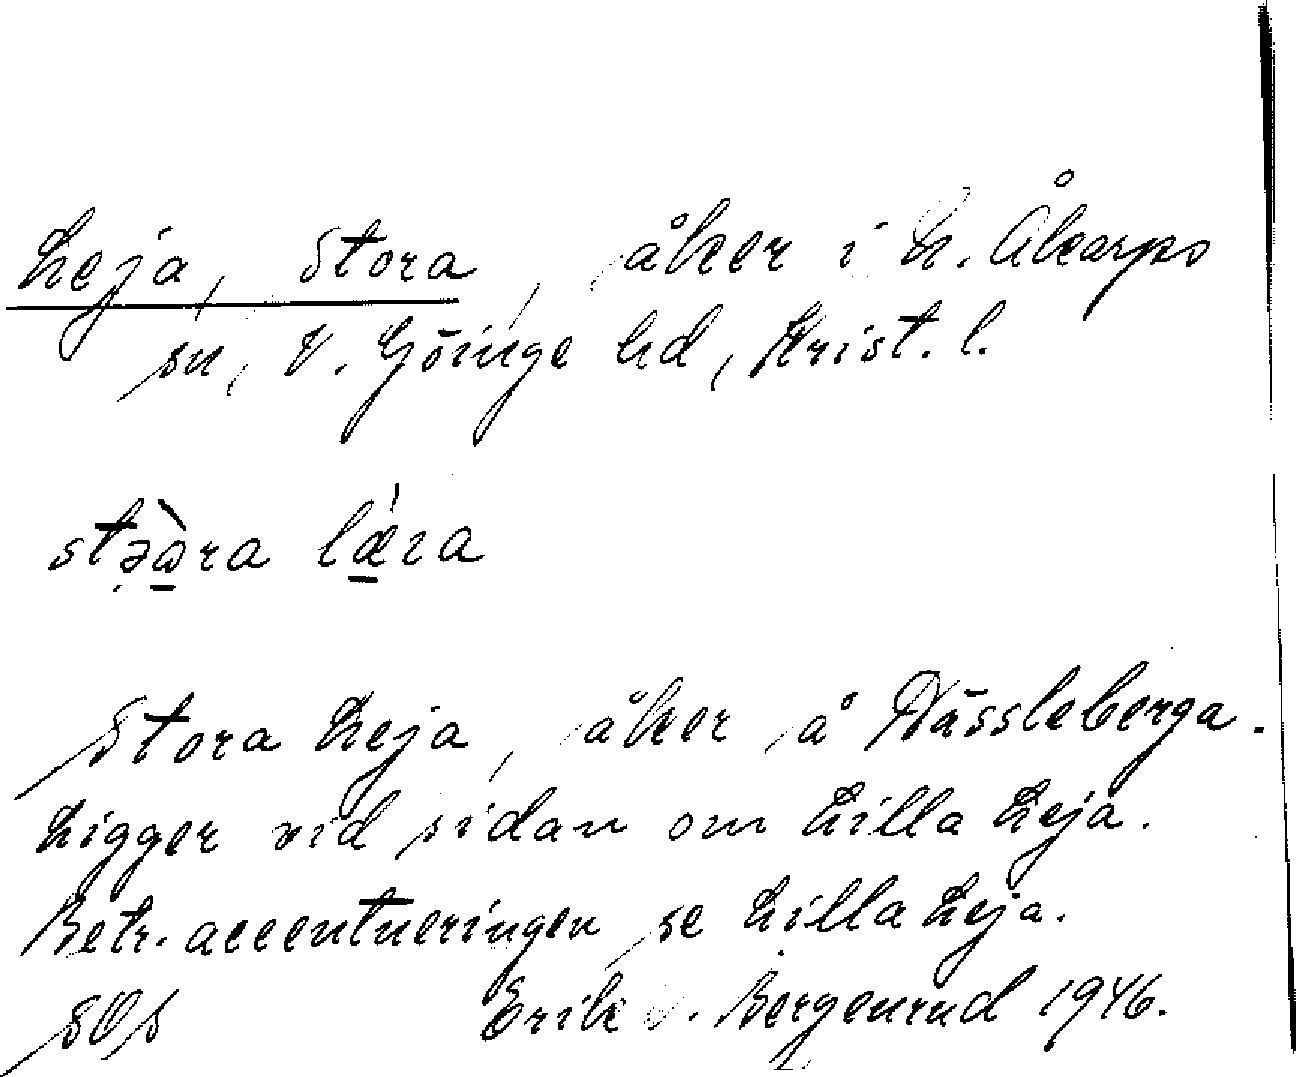 Leja, Stora, åker i N. Åkarps
sn, V. Göinge hd, Krist. l.
stə̣ὼ̱ra lǽ̱ıa
Stora Leja, åker å Nässleberga.
Ligger vid sidan om Lilla Leja.
Betr. accentueringen se Lilla Leja.
SOs Erik Bergenrud 1946.